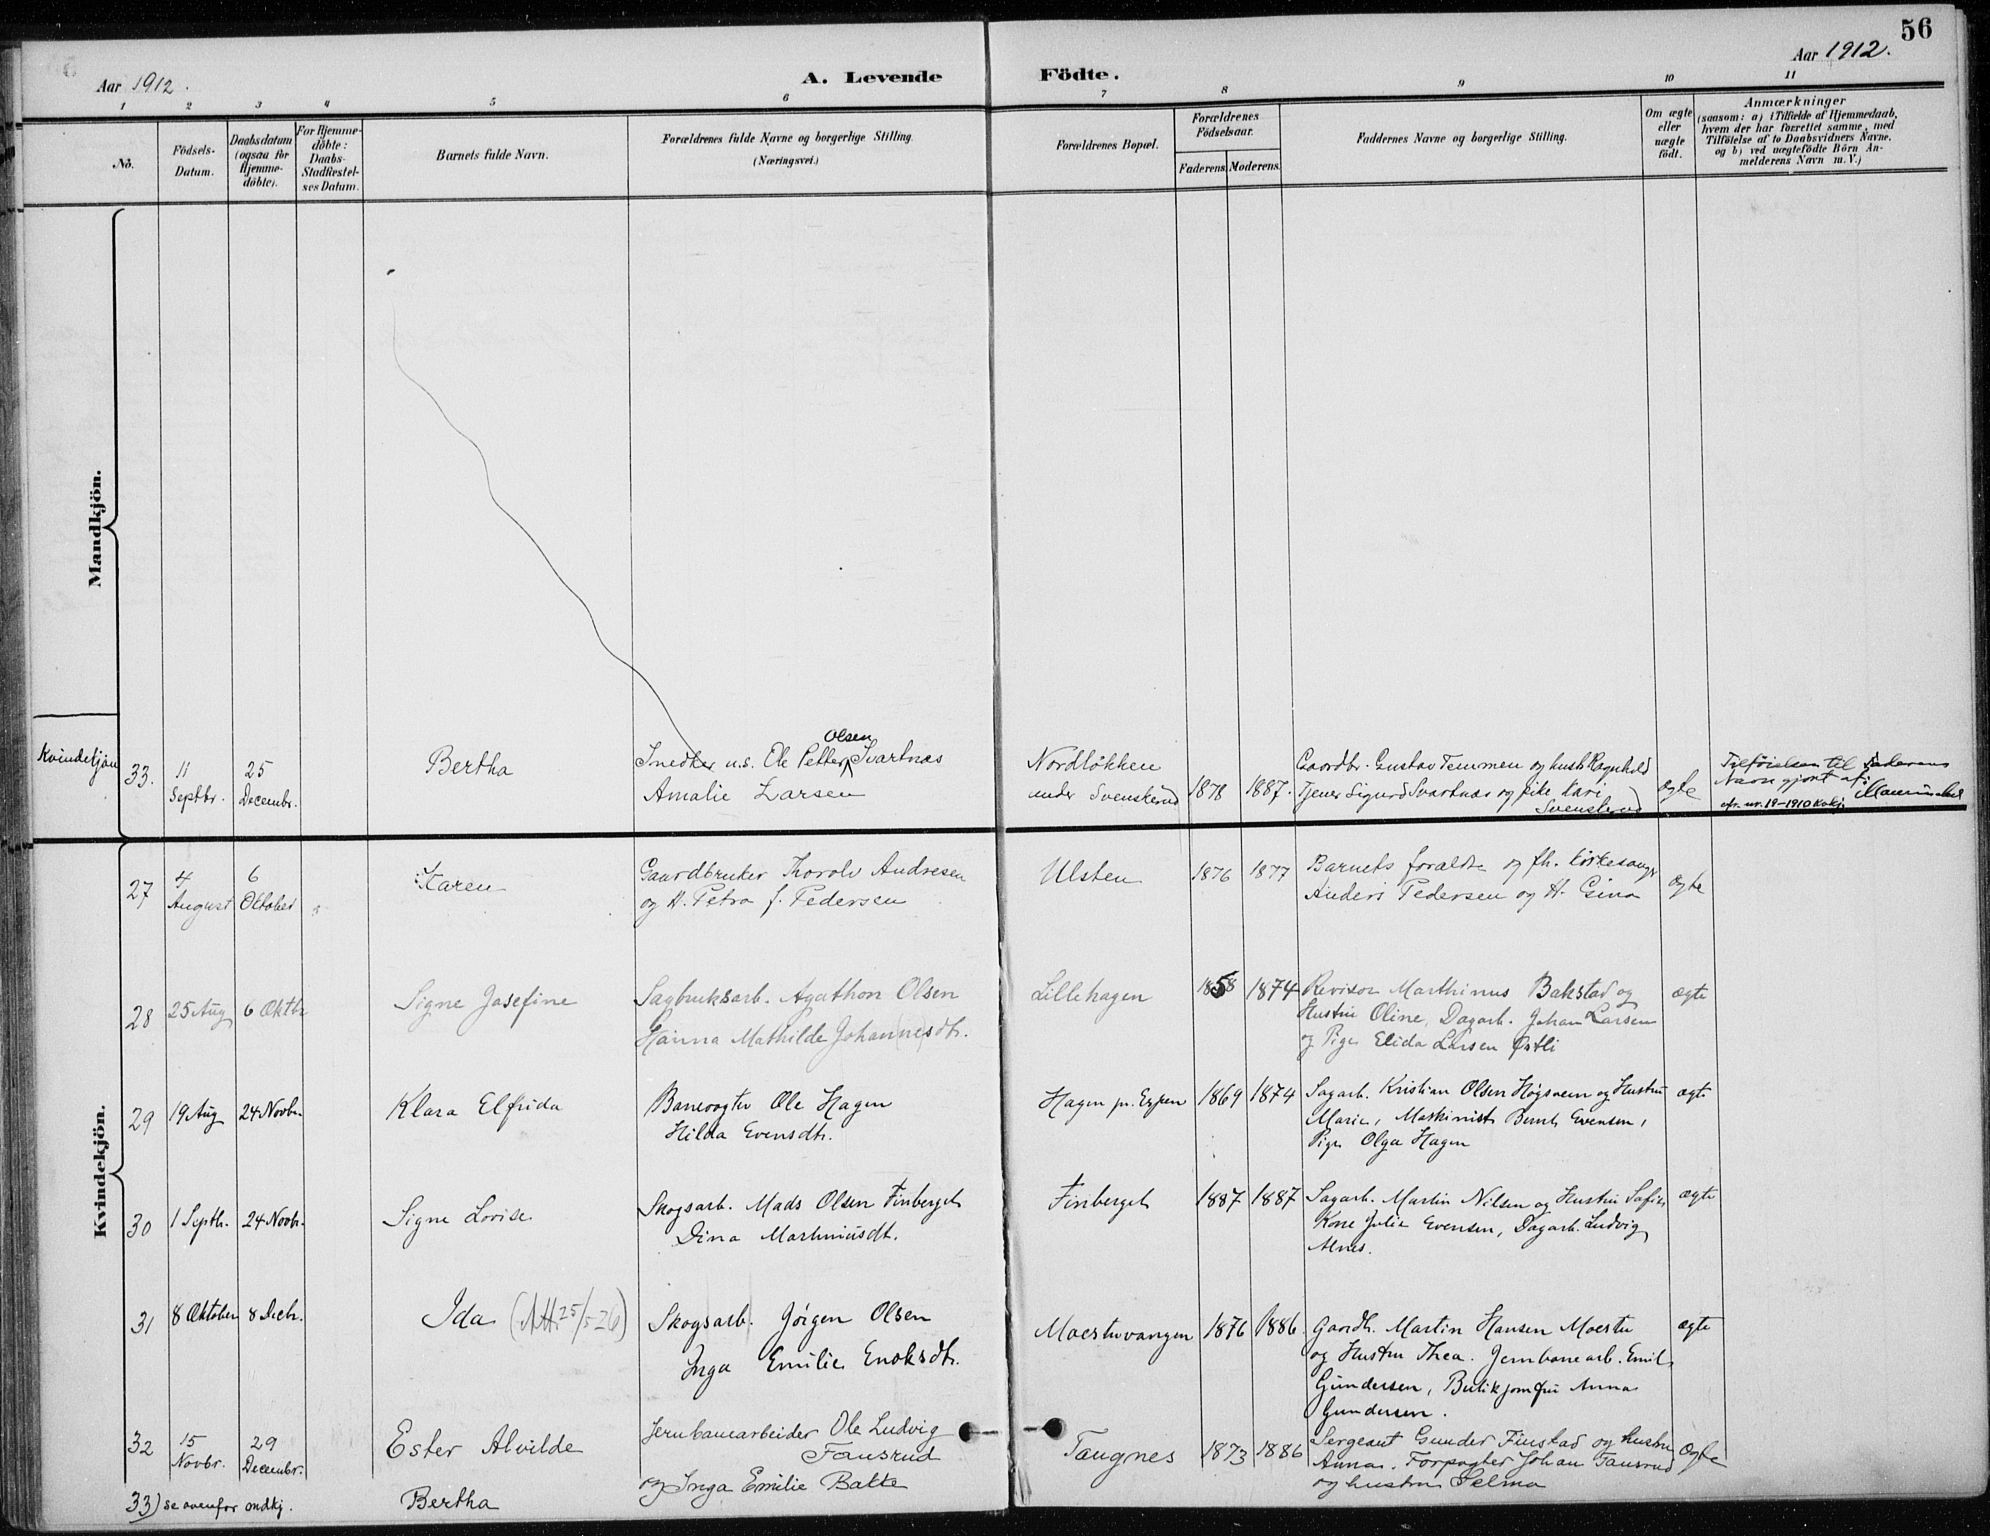 56
Aar 1912.
A. Levende Födte.
Aar 1912.
1 2 3 4 5 6 7 8 9 10 11
No.
Födsels-Datum.
Daabsdatum (ogsaa for Hjemme-döbte).
For Hjemme-döbte: Daabs-Stadfæstel-ses Datum.
Barnets fulde Navn.
Forældrenes fulde Navne og borgerlige Stilling.
(Næringsvei.)
Forældrenes Bopæl.
Forældrenes Födselsaar.
Faderens. Moderens.
Faddernes Navne og borgerlige Stilling.
Om ægte eller uægte födt.
Anmærkninger
(saasom: a) i Tilfælde af Hjemmedaab,
hvem der har forrettet samme, med
Tilföielse af to Daabsvidners Navne.
og b) ved uægtefödte Börn An-
melderens Navn m. V.)
Mandkjön.
Kvindekjön
33. 11 Septbr. 25 Decembr. Bertha
Snedker u.s. Ole Petter Olsen Svartnæs
Amalie Larsen
Nordløkken
under Svenskerud 1878 1887.
Gaardbr. Gustav Temmen og hustr. Ragnhild
Tjener Sigurd Svartnæs og pike Kari
Svenskerud
ægte
Tilføielsen til Faderens
Navn gjort af
cfr. nr. 19-1910 kvkj.
Kvindekjön.
27 4 August 6 Oktober Karen
Gaardbruker Thorolv Andresen
og H. Petra f. Pedersen
Ulsten 1876 1877
Barnets forældre og fh. kirkesanger
Anders Pedersen og H. Gina
ægte
28 25 Aug 6 Oktbr Signe Josefine
Sagbruksarb. Agathon Olsen
Hanna Mathilde Johan(ne)sdtr.
Lillehagen 1858 1874
Revisor Marthinus Bakstad og
Hustru Oline, Dagarb. Johan Larsen
og Pige Elida Larsen Østli
ægte
29 19 Aug 24 Novbr. Klara Elfrida
Banevogter Ole Hagen
Hilda Evensdtr.
Hagen pr. Espen 1869 1874
Sagarb. Kristian Olsen Høgsveen og Hustru
Marie, Maskinist Bernt Evensen,
Pige Olga Hagen
ægte
30 1 Septbr. 24 Novbr. Signe Lovise
Skogsarb. Mads Olsen Finberget
Dina Marthinusdt.
Finberget 1887 1887
Sagarb. Martin Nilsen og Hustru Sofie,
Kone Julie Evensen, Dagarb. Ludvig
Alnes.
ægte
31 8 Oktober 8 Decbr. Ida (Att. 25/5 26)
Skogsarb. Jörgen Olsen
Inga Emilie Enoksdtr.
Moestuvangen 1876 1886.
Gaardbr. Martin Hansen Moestu
og Hustru Thea. Jernbanearb. Emil
Gundersen, Butikjomfru Anna
Gundersen.
ægte
32 15 Novbr. 29 Decembr. Ester Alvilde
Jernbanearbeider Ole Ludvig
Fansrud
og Inga Emilie Bakke
Tangnes 1873 1886
Sergeant Gunder Finstad og hustru
Anna. Forpagter Johan Fansrud
og hustru Selma
Ægte
33) se ovenfor mdkj. Bertha